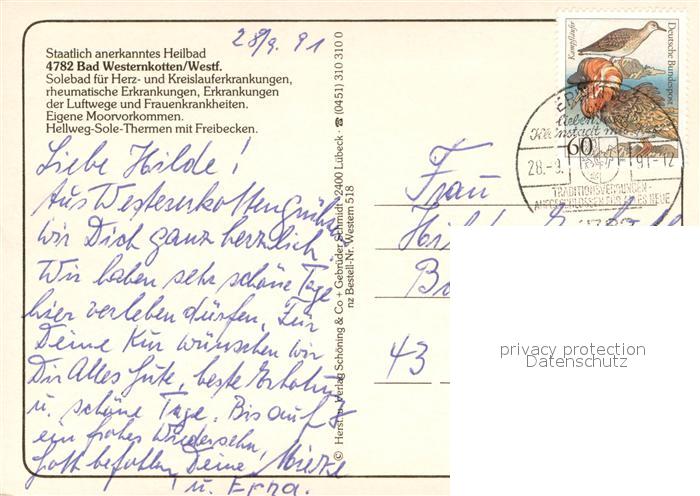 28/9. 91
Staatlich anerkanntes Heilbad
4782 Bad Westernkotten/Westf.
Solebad für Herz- und Kreislauferkrankungen,
rheumatische Erkrankungen, Erkrankungen
der Luftwege und Frauenkrankheiten.
Eigene Moorvorkommen.
Hellweg-Sole-Thermen mit Freibecken.
Liebe Hilde!
Aus Westernkotten grüßen
wir Dich ganz herzlich.
Wir haben sehr schöne Tage
hier verleben dürfen. Für
Deine Kur wünschen wir
Dir Alles Gute, beste Erholung
u. schöne Tage. Bis auf
ein frohes Wiedersehn,
Gott befohlen, Deine
u. Erna.
© Herst. u. Verlag Schöning & Co + Gebrüder Schmidt · 2400 Lübeck · ☎ (0451) 310 310 0
nz Bestell-Nr. Western 518
Kampfläufer
Deutsche Bundespost
60
28.-9. 91-12
TRADITIONSVERBUNDEN-
Frau
43
privacy protection
Datenschutz